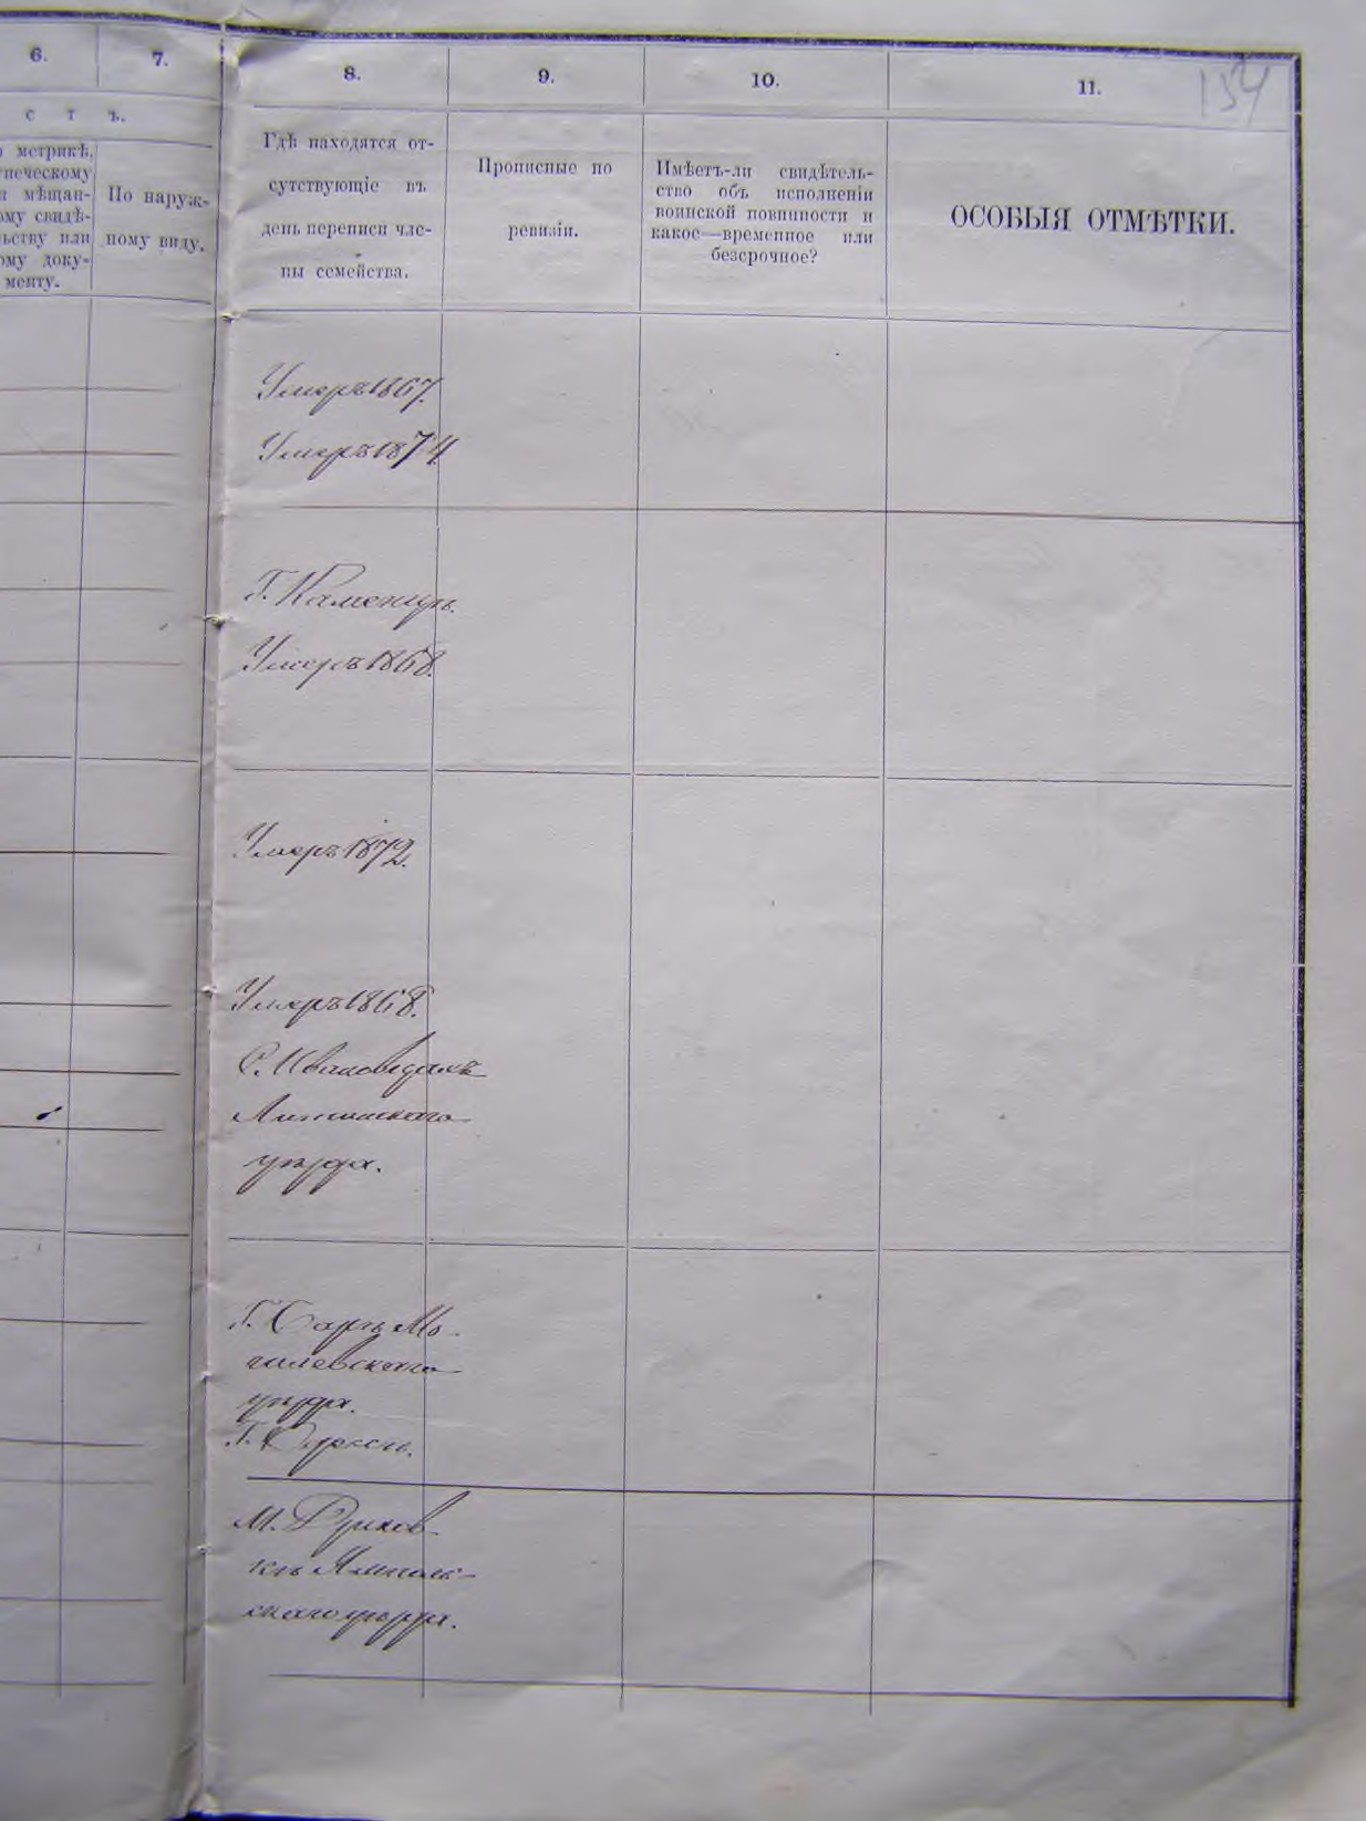 6.
7.
8.
9.
10.
11.
154
с т ъ.
о метрикѣ,
ому свидѣ-
ьству или
ому доку-
менту.
По наруж-
ному виду.
Гдѣ находятся от-
сутствующіе въ
день переписи чле-
ны семейства.
Прописные по
ревизіи.
Имѣетъ-ли свидѣтель-
ство объ исполненіи
воинской повинности и
какое—временное или
безсрочное?
ОСОБЫЯ ОТМѢТКИ.
Умеръ 1867.
Умеръ 1874.
Г. Каменцѣ.
Умеръ 1868.
Умеръ 1872.
Умеръ 1868.
С.
Литинскаго
уѣзда.
Г. Барѣ Мо-
гилевскаго
уѣзда.
Г. Одессѣ.
М. Дзигов-
кѣ Ямполь-
скаго уѣзда.